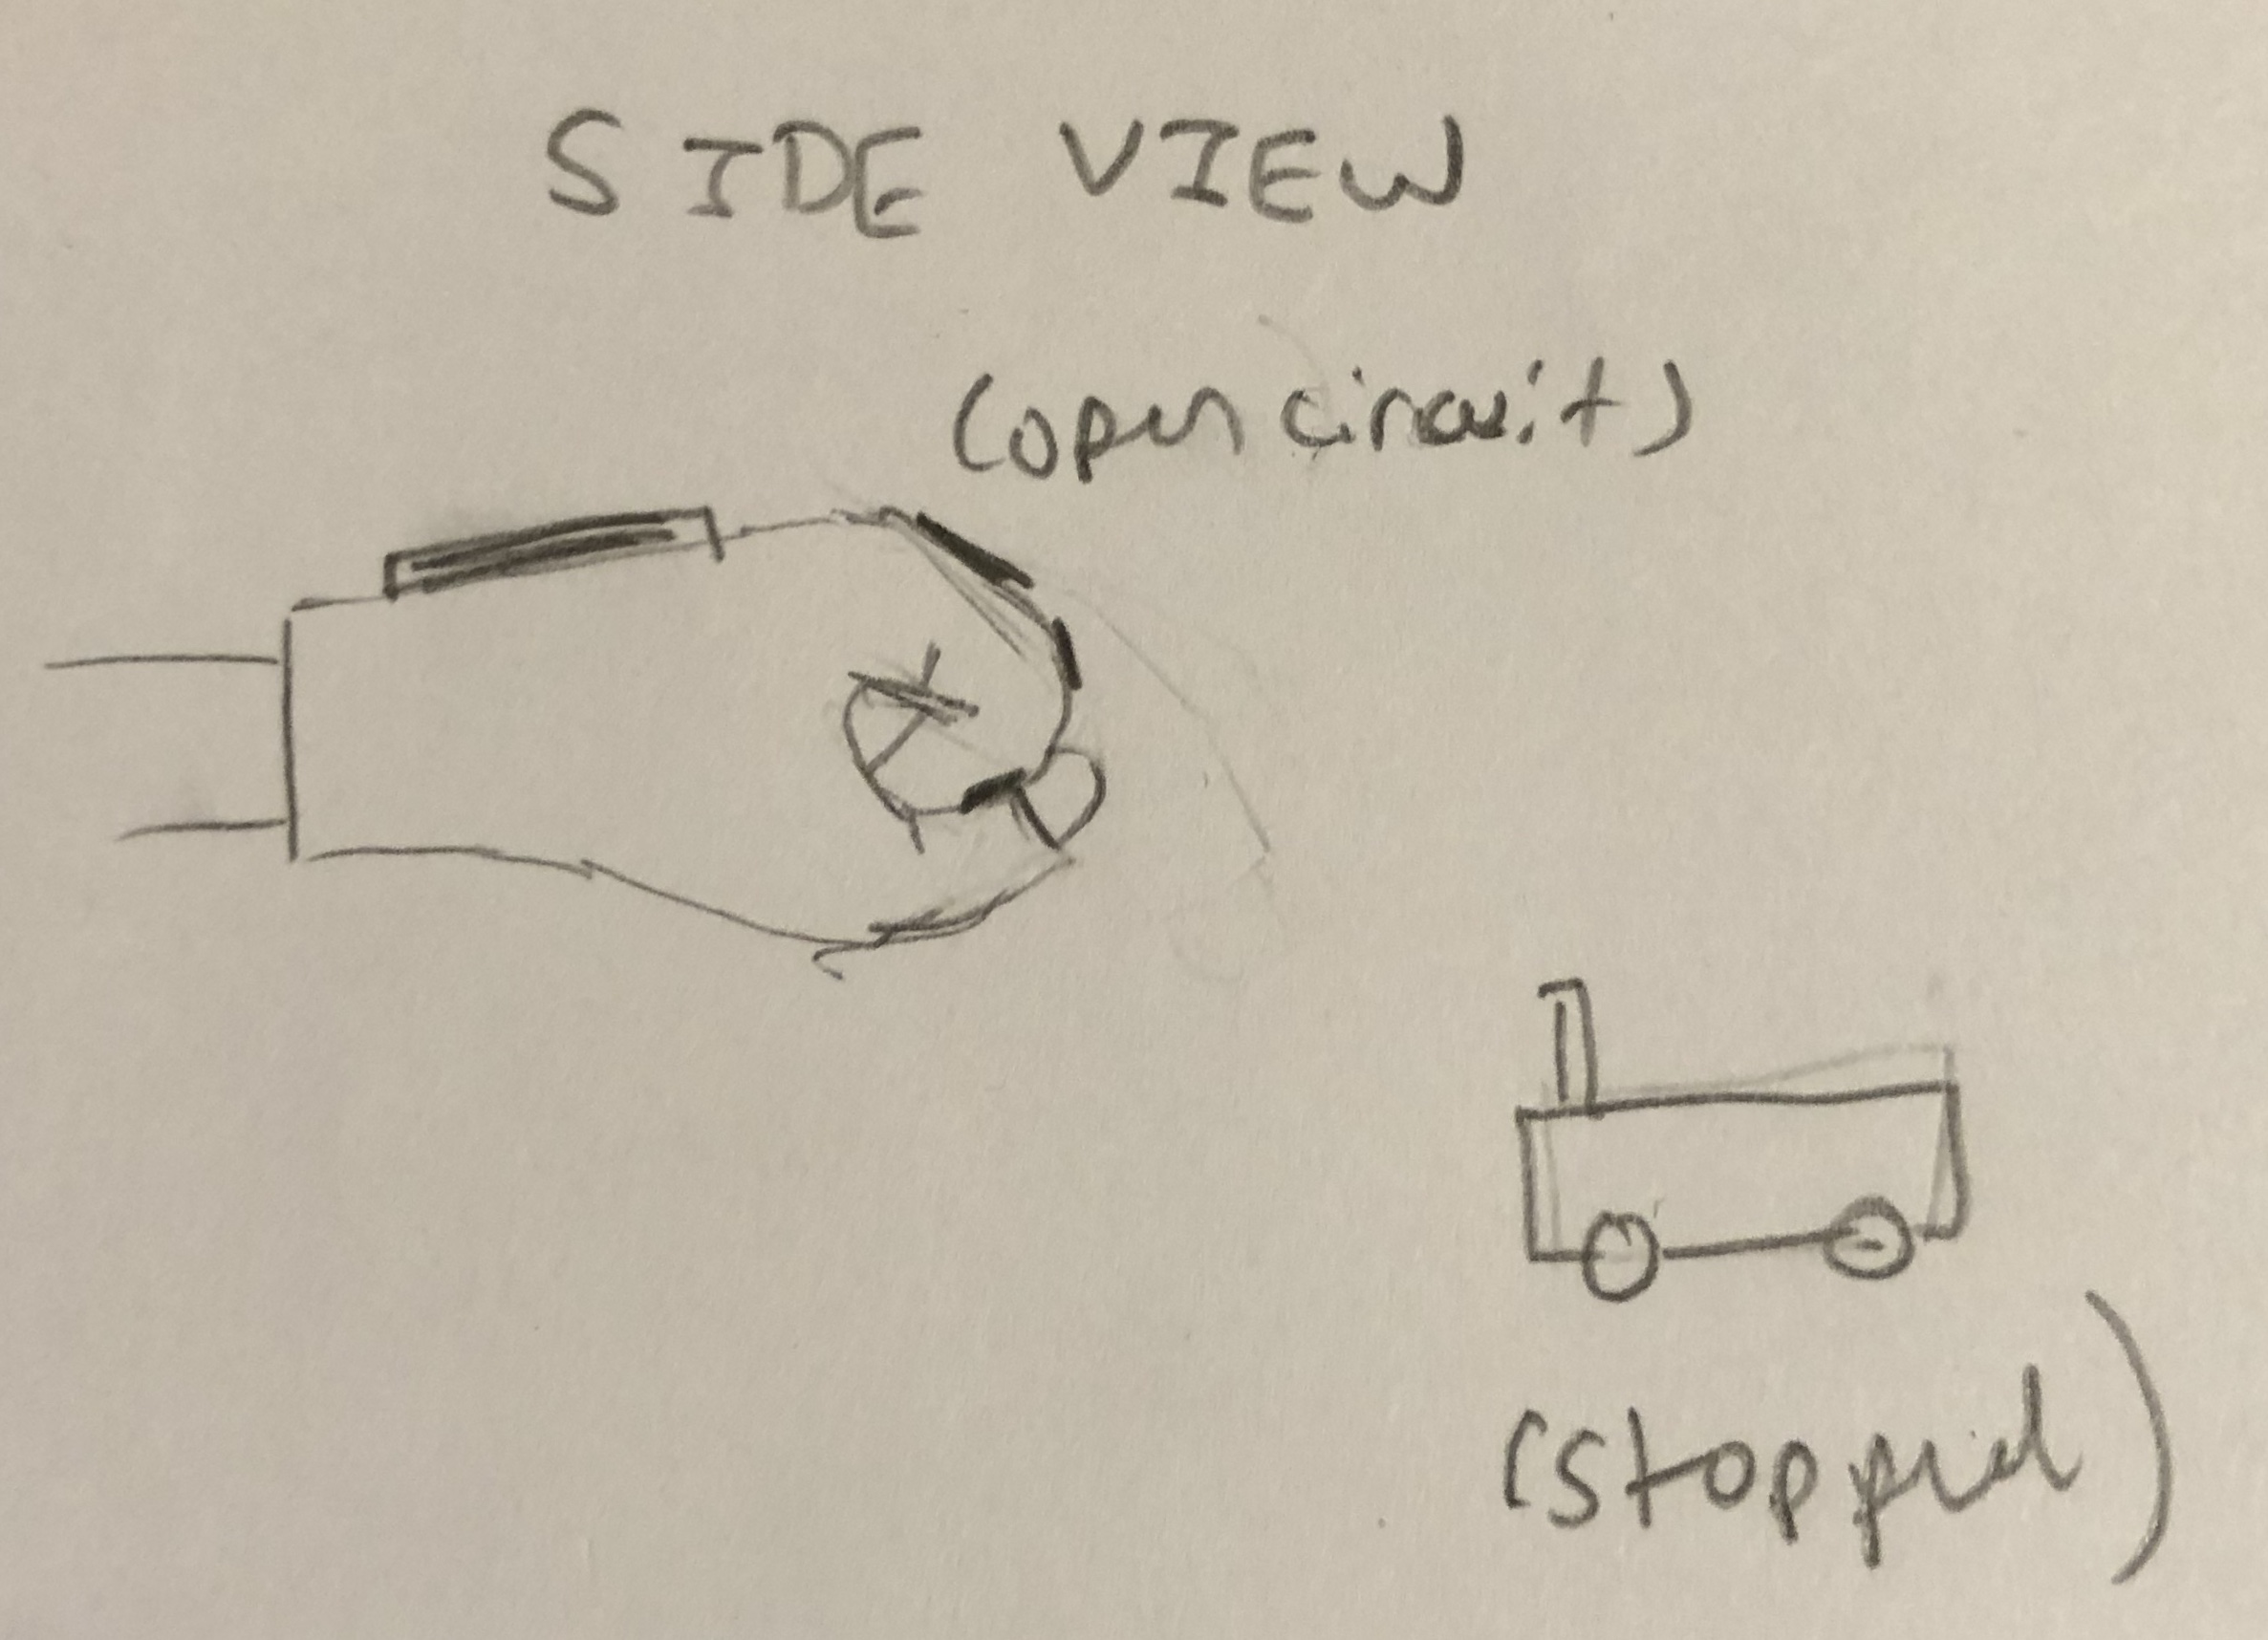 SIDE VIEW
(open circuit)
(stopped)